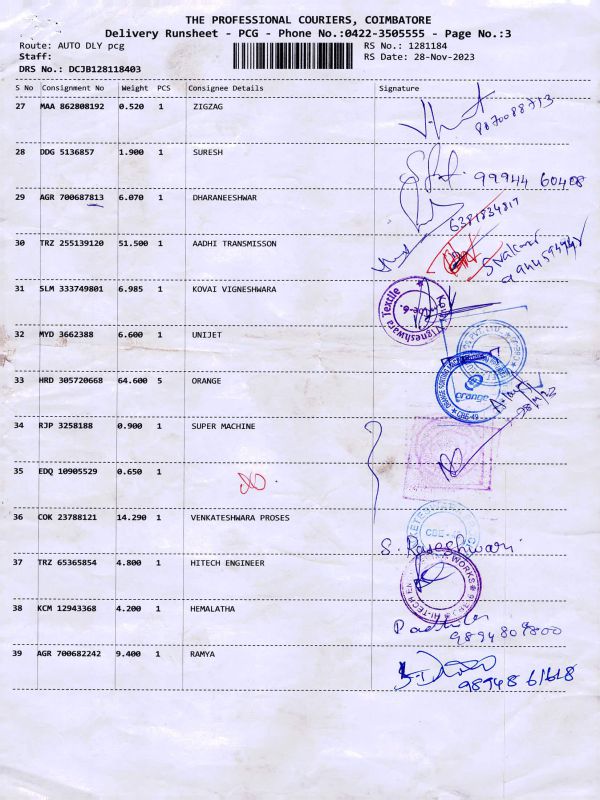 THE PROFESSIONAL COURIERS, COIMBATORE
Delivery Runsheet - PCG - Phone No.:0422-3505555 - Page No.:3
Route: AUTO DLY pcg RS No.: 1281184
Staff: RS Date: 28-Nov-2023
DRS No.: DCJB128118403
S No Consignment No Weight PCS Consignee Details Signature
27 MAA 862808192 0.520 1 ZIGZAG
28 DDG 5136857 1.900 1 SURESH
99944 60408
29 AGR 700687813 6.070 1 DHARANEESHWAR
6381834817
30 TRZ 255139120 51.500 1 AADHI TRANSMISSON
Sivakumar
31 SLM 333749801 6.985 1 KOVAI VIGNESHWARA
Kovai Vigneshwara Textile
32 MYD 3662388 6.600 1 UNIJET
33 HRD 305720668 64.600 5 ORANGE
orange
CBE-49
34 RJP 3258188 0.900 1 SUPER MACHINE
35 EDQ 10905529 0.650 1
36 COK 23788121 14.290 1 VENKATESHWARA PROSES
S. Rajeshwari
37 TRZ 65365854 4.800 1 HITECH ENGINEER
38 KCM 12943368 4.200 1 HEMALATHA
9894807800
39 AGR 700682242 9.400 1 RAMYA
98948 61618